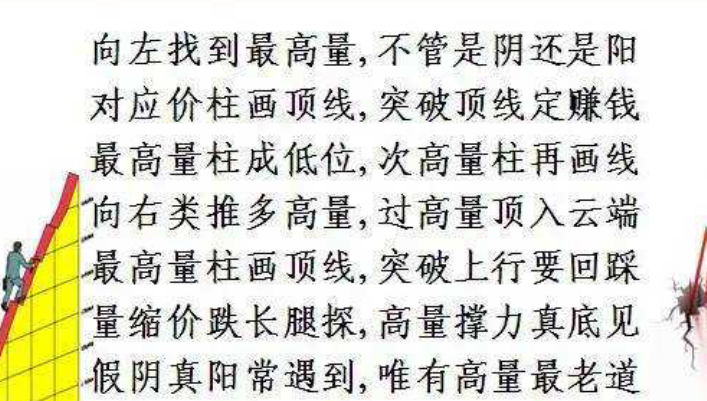 向左找到最高量,不管是阴还是阳
对应价柱画顶线,突破顶线定赚钱
最高量柱成低位,次高量柱再画线
向右类推多高量,过高量顶入云端
最高量柱画顶线,突破上行要回踩
量缩价跌长腿探,高量撑力真底见
假阴真阳常遇到,唯有高量最老道